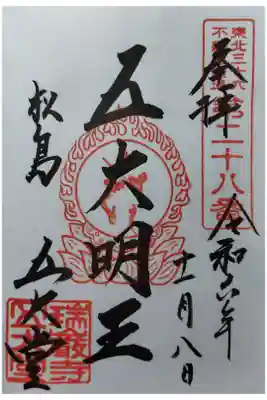 東北三十六
不動尊霊場
第二十八番
奉拝
令和六年
十一月八日
五大明王
松島
五大堂
瑞巌寺